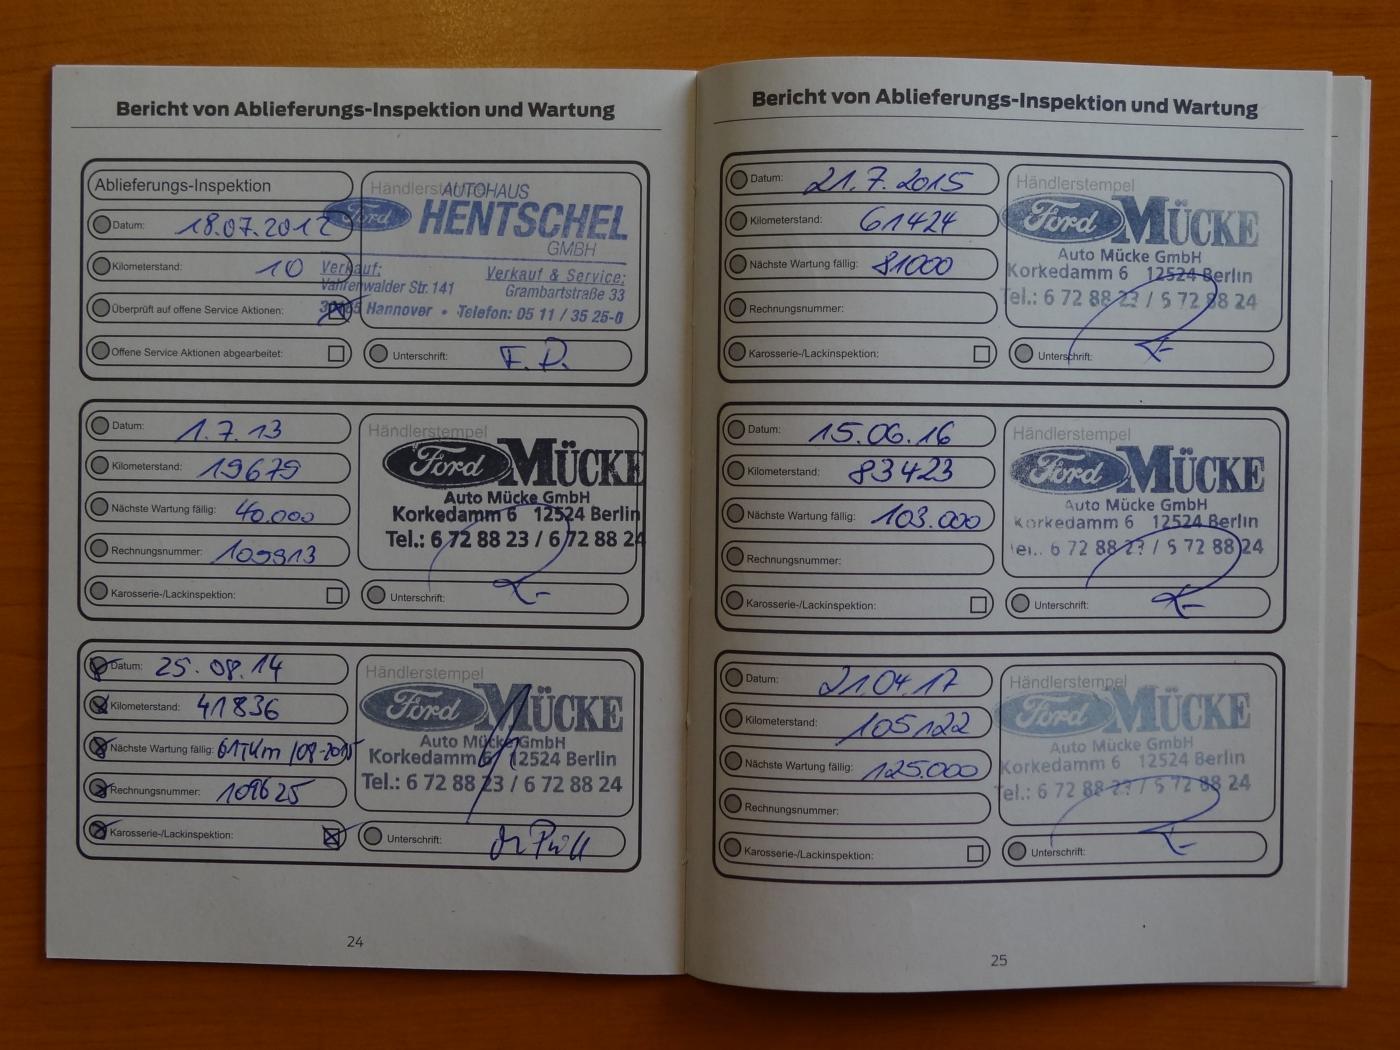 Bericht von Ablieferungs-Inspektion und Wartung
Ablieferungs-Inspektion
Datum: 18.07.2012
Kilometerstand: 10
Überprüft auf offene Service Aktionen:
Offene Service Aktionen abgearbeitet:
Händlerstempel
AUTOHAUS
Ford HENTSCHEL
GMBH
Verkauf: Verkauf & Service:
Vahrenwalder Str. 141 Grambartstraße 33
30165 Hannover • Telefon: 05 11 / 35 25-0
Unterschrift: F. P.
Datum: 1.7.13
Kilometerstand: 19679
Nächste Wartung fällig: 40.000
Rechnungsnummer: 109913
Karosserie-/Lackinspektion:
Händlerstempel
Ford MÜCKE
Auto Mücke GmbH
Korkedamm 6 12524 Berlin
Tel.: 6 72 88 23 / 6 72 88 24
Unterschrift:
Datum: 25.08.14
Kilometerstand: 41836
Nächste Wartung fällig: 61Tkm /08-2015
Rechnungsnummer: 109625
Karosserie-/Lackinspektion:
Händlerstempel
Ford MÜCKE
Auto Mücke GmbH
Korkedamm 6 12524 Berlin
Tel.: 6 72 88 23 / 6 72 88 24
Unterschrift:
24
Bericht von Ablieferungs-Inspektion und Wartung
Datum: 21.7.2015
Kilometerstand: 61424
Nächste Wartung fällig: 81000
Rechnungsnummer:
Karosserie-/Lackinspektion:
Händlerstempel
Ford MÜCKE
Auto Mücke GmbH
Korkedamm 6 12524 Berlin
Tel.: 6 72 88 23 / 6 72 88 24
Unterschrift:
Datum: 15.06.16
Kilometerstand: 83423
Nächste Wartung fällig: 103.000
Rechnungsnummer:
Karosserie-/Lackinspektion:
Händlerstempel
Ford MÜCKE
Auto Mücke GmbH
Korkedamm 6 12524 Berlin
Tel.: 6 72 88 23 / 6 72 88 24
Unterschrift:
Datum: 21.04.17
Kilometerstand: 105122
Nächste Wartung fällig: 125.000
Rechnungsnummer:
Karosserie-/Lackinspektion:
Händlerstempel
Ford MÜCKE
Auto Mücke GmbH
Korkedamm 6 12524 Berlin
Tel.: 6 72 88 23 / 6 72 88 24
Unterschrift:
25